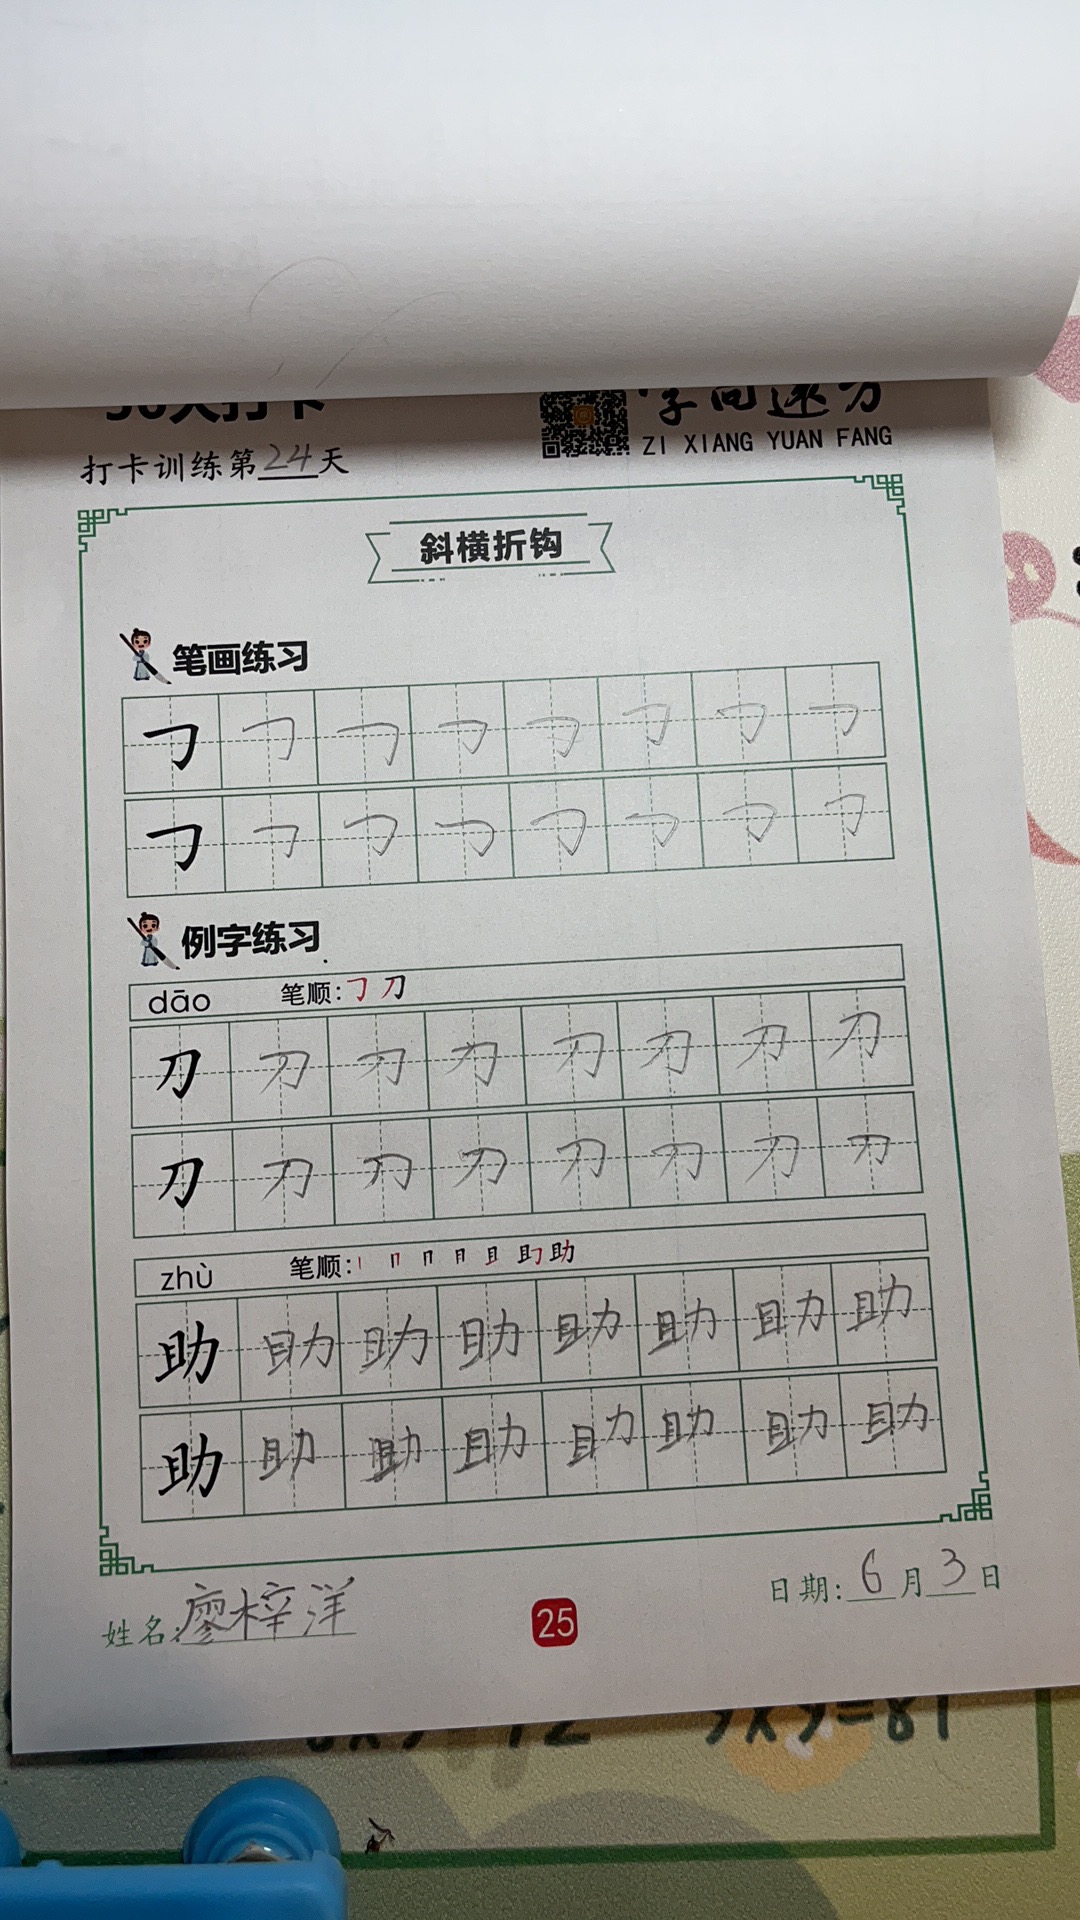 30天打卡
字向速方
ZI XIANG YUAN FANG
打卡训练第24天
斜横折钩
笔画练习
例字练习
dāo 笔顺: 刀
刀 刀 刀 刀 刀 刀 刀 刀
刀 刀 刀 刀 刀 刀 刀 刀
zhù 笔顺: 丨 冂 月 且 助
助 助 助 助 助 助 助 助
助 助 助 助 助 助 助 助
姓名:廖梓洋
25
日期:6月3日
9x9=81